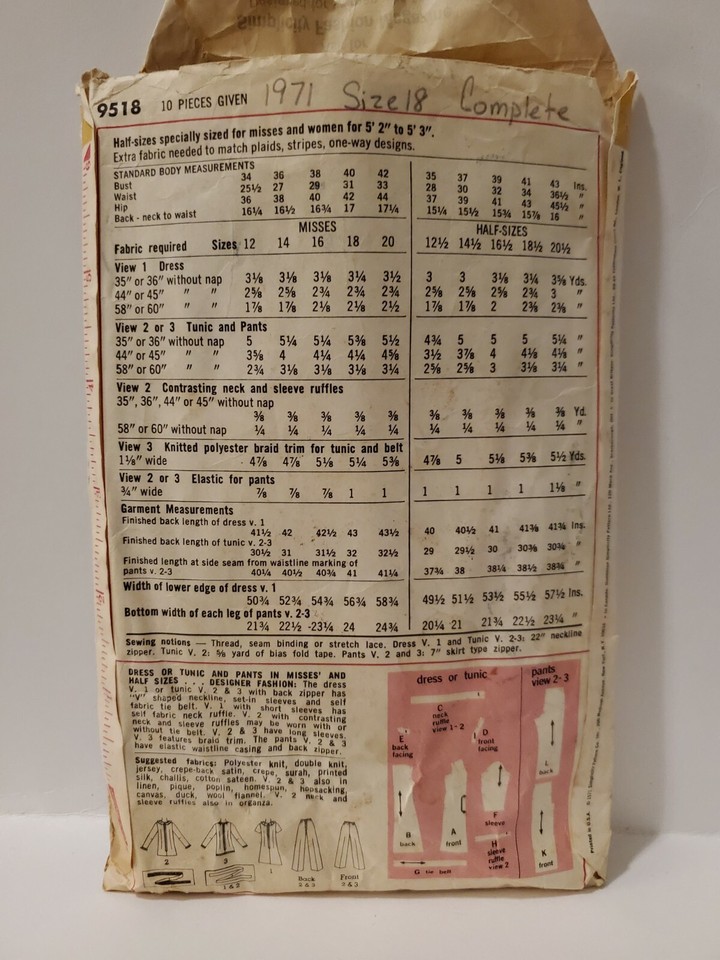 Simplicity Fashion
9518 10 PIECES GIVEN 1971 Size 18 Complete
Half-sizes specially sized for misses and women for 5' 2" to 5' 3".
Extra fabric needed to match plaids, stripes, one-way designs.
STANDARD BODY MEASUREMENTS
Bust 34 36 38 40 42 35 37 39 41 43 Ins.
Waist 25½ 27 29 31 33 28 30 32 34 36½ "
Hip 36 38 40 42 44 37 39 41 43 45½ "
Back - neck to waist 16¼ 16½ 16¾ 17 17¼ 15¼ 15½ 15¾ 15⅞ 16 "
MISSES HALF-SIZES
Fabric required Sizes 12 14 16 18 20 12½ 14½ 16½ 18½ 20½
View 1 Dress
35" or 36" without nap 3⅛ 3⅛ 3⅛ 3¼ 3½ 3 3 3⅛ 3¼ 3⅜ Yds.
44" or 45" " " 2⅝ 2⅝ 2¾ 2¾ 2¾ 2⅝ 2⅝ 2⅝ 2¾ 3 "
58" or 60" " " 1⅞ 1⅞ 2⅛ 2⅛ 2½ 1⅞ 1⅞ 2 2⅜ 2⅜ "
View 2 or 3 Tunic and Pants
35" or 36" without nap 5 5¼ 5¼ 5⅜ 5½ 4¾ 5 5 5 5¼ "
44" or 45" " " 3⅝ 4 4¼ 4¼ 4⅝ 3½ 3⅞ 4 4⅛ 4⅛ "
58" or 60" " " 2¾ 3⅛ 3⅛ 3⅛ 3¼ 2⅝ 2⅝ 3 3⅛ 3¼ "
View 2 Contrasting neck and sleeve ruffles
35", 36", 44" or 45" without nap
⅜ ⅜ ⅜ ⅜ ⅜ ⅜ ⅜ ⅜ ⅜ ⅜ Yd.
58" or 60" without nap ¼ ¼ ¼ ¼ ¼ ¼ ¼ ¼ ¼ ¼ "
View 3 Knitted polyester braid trim for tunic and belt
1⅛" wide 4⅞ 4⅞ 5⅛ 5¼ 5⅜ 4⅞ 5 5⅛ 5⅜ 5½ Yds.
View 2 or 3 Elastic for pants
¾" wide ⅞ ⅞ ⅞ 1 1 1 1 1 1 1⅛ "
Garment Measurements
Finished back length of dress v. 1
41½ 42 42½ 43 43½ 40 40½ 41 41⅜ 41¾ Ins.
Finished back length of tunic v. 2-3
30½ 31 31½ 32 32½ 29 29½ 30 30⅜ 30¾ "
Finished length at side seam from waistline marking of
pants v. 2-3 40¼ 40½ 40¾ 41 41¼ 37¾ 38 38¼ 38½ 38¾ "
Width of lower edge of dress v. 1
50¾ 52¾ 54¾ 56¾ 58¾ 49½ 51½ 53½ 55½ 57½ Ins.
Bottom width of each leg of pants v. 2-3
21¾ 22½ -23¼ 24 24¾ 20¼ 21 21¾ 22½ 23¼ "
Sewing notions — Thread, seam binding or stretch lace. Dress V. 1 and Tunic V. 2-3: 22" neckline
zipper. Tunic V. 2: ⅝ yard of bias fold tape. Pants V. 2 and 3: 7" skirt type zipper.
DRESS OR TUNIC AND PANTS IN MISSES' AND
HALF SIZES . . . DESIGNER FASHION: The dress
V. 1 or tunic V. 2 & 3 with back zipper has
"V" shaped neckline, set-in sleeves and self
fabric tie belt. V. 1 with short sleeves has
self fabric neck ruffle. V. 2 with contrasting
neck and sleeve ruffles may be worn with or
without tie belt. V. 2 & 3 have long sleeves.
V. 3 features braid trim. The pants V. 2 & 3
have elastic waistline casing and back zipper.
Suggested fabrics: Polyester knit, double knit,
jersey, crepe-back satin, crepe, surah, printed
silk, challis, cotton sateen. V. 2 & 3 also in
linen, pique, poplin, homespun, hopsacking,
canvas, duck, wool flannel. V. 2 neck and
sleeve ruffles also in organza.
2
3
1
Back
2 & 3
Front
2 & 3
1 & 2
dress or tunic
pants
view 2-3
C
neck
ruffle
view 1-2
E
back
facing
D
front
facing
L
back
B
back
A
front
F
sleeve
H
sleeve
ruffle
view 2
K
front
G tie belt
Printed in U.S.A.